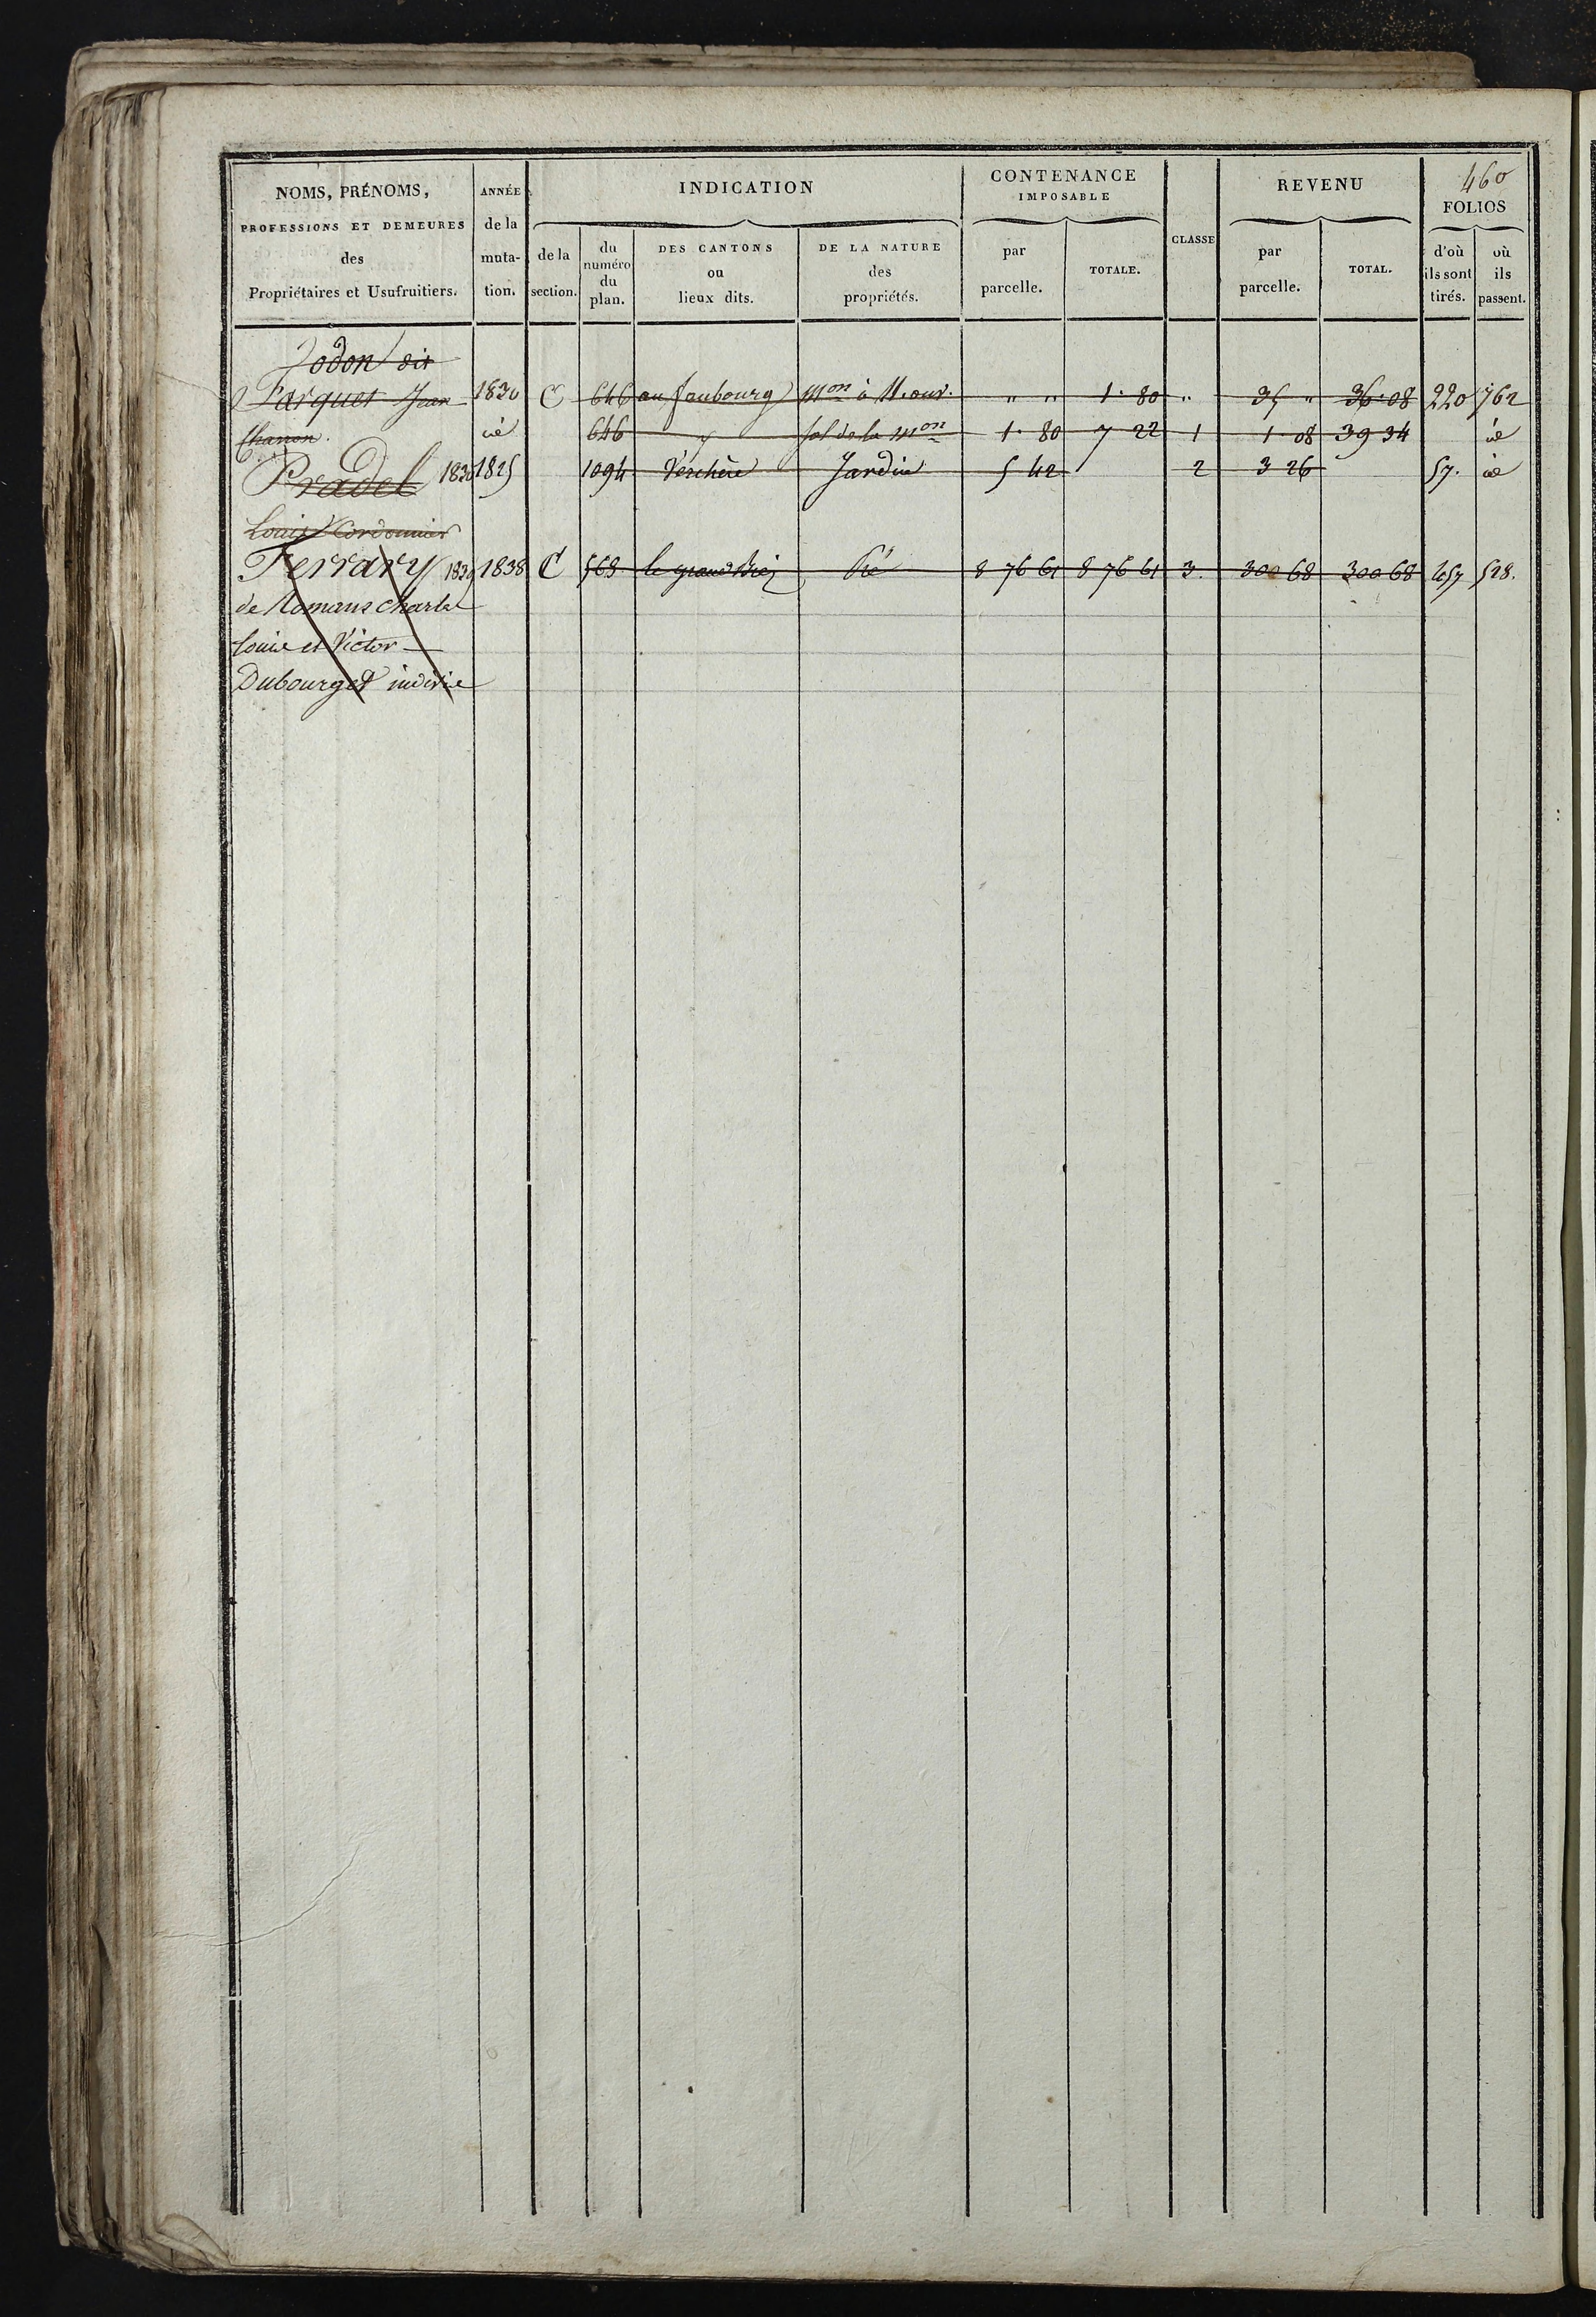 460
NOMS, PRÉNOMS, PROFESSIONS ET DEMEURES des Propriétaires et Usufruitiers.
ANNÉE de la muta- tion.
INDICATION
de la section.
du numéro du plan.
DES CANTONS ou lieux dits.
DE LA NATURE des propriétés.
CONTENANCE IMPOSABLE
par parcelle.
TOTALE.
CLASSE
REVENU
par parcelle.
TOTAL.
FOLIOS
d'où ils sont tirés.
où ils passent.
Jodon dit
Farquet Jean 1830 C 646 au faubourg mon à 11. ouv. " " 1. 80 " 35 " 36. 08 220 762
Charron. id 646 " sol de la mon 1. 80 7 22 1 1 08 39 34 id
Pradel 1830 1825 1094 Verchère Jardin 5 42 2 3 26 57. id
Louis Cordonnier
Ferrary 1839 1838 C 569 le grand Pré 8 76 61 8 76 61 3. 300 68 300 68 528.
de Romans Charles
Louis et Victor
Dubourget indivis